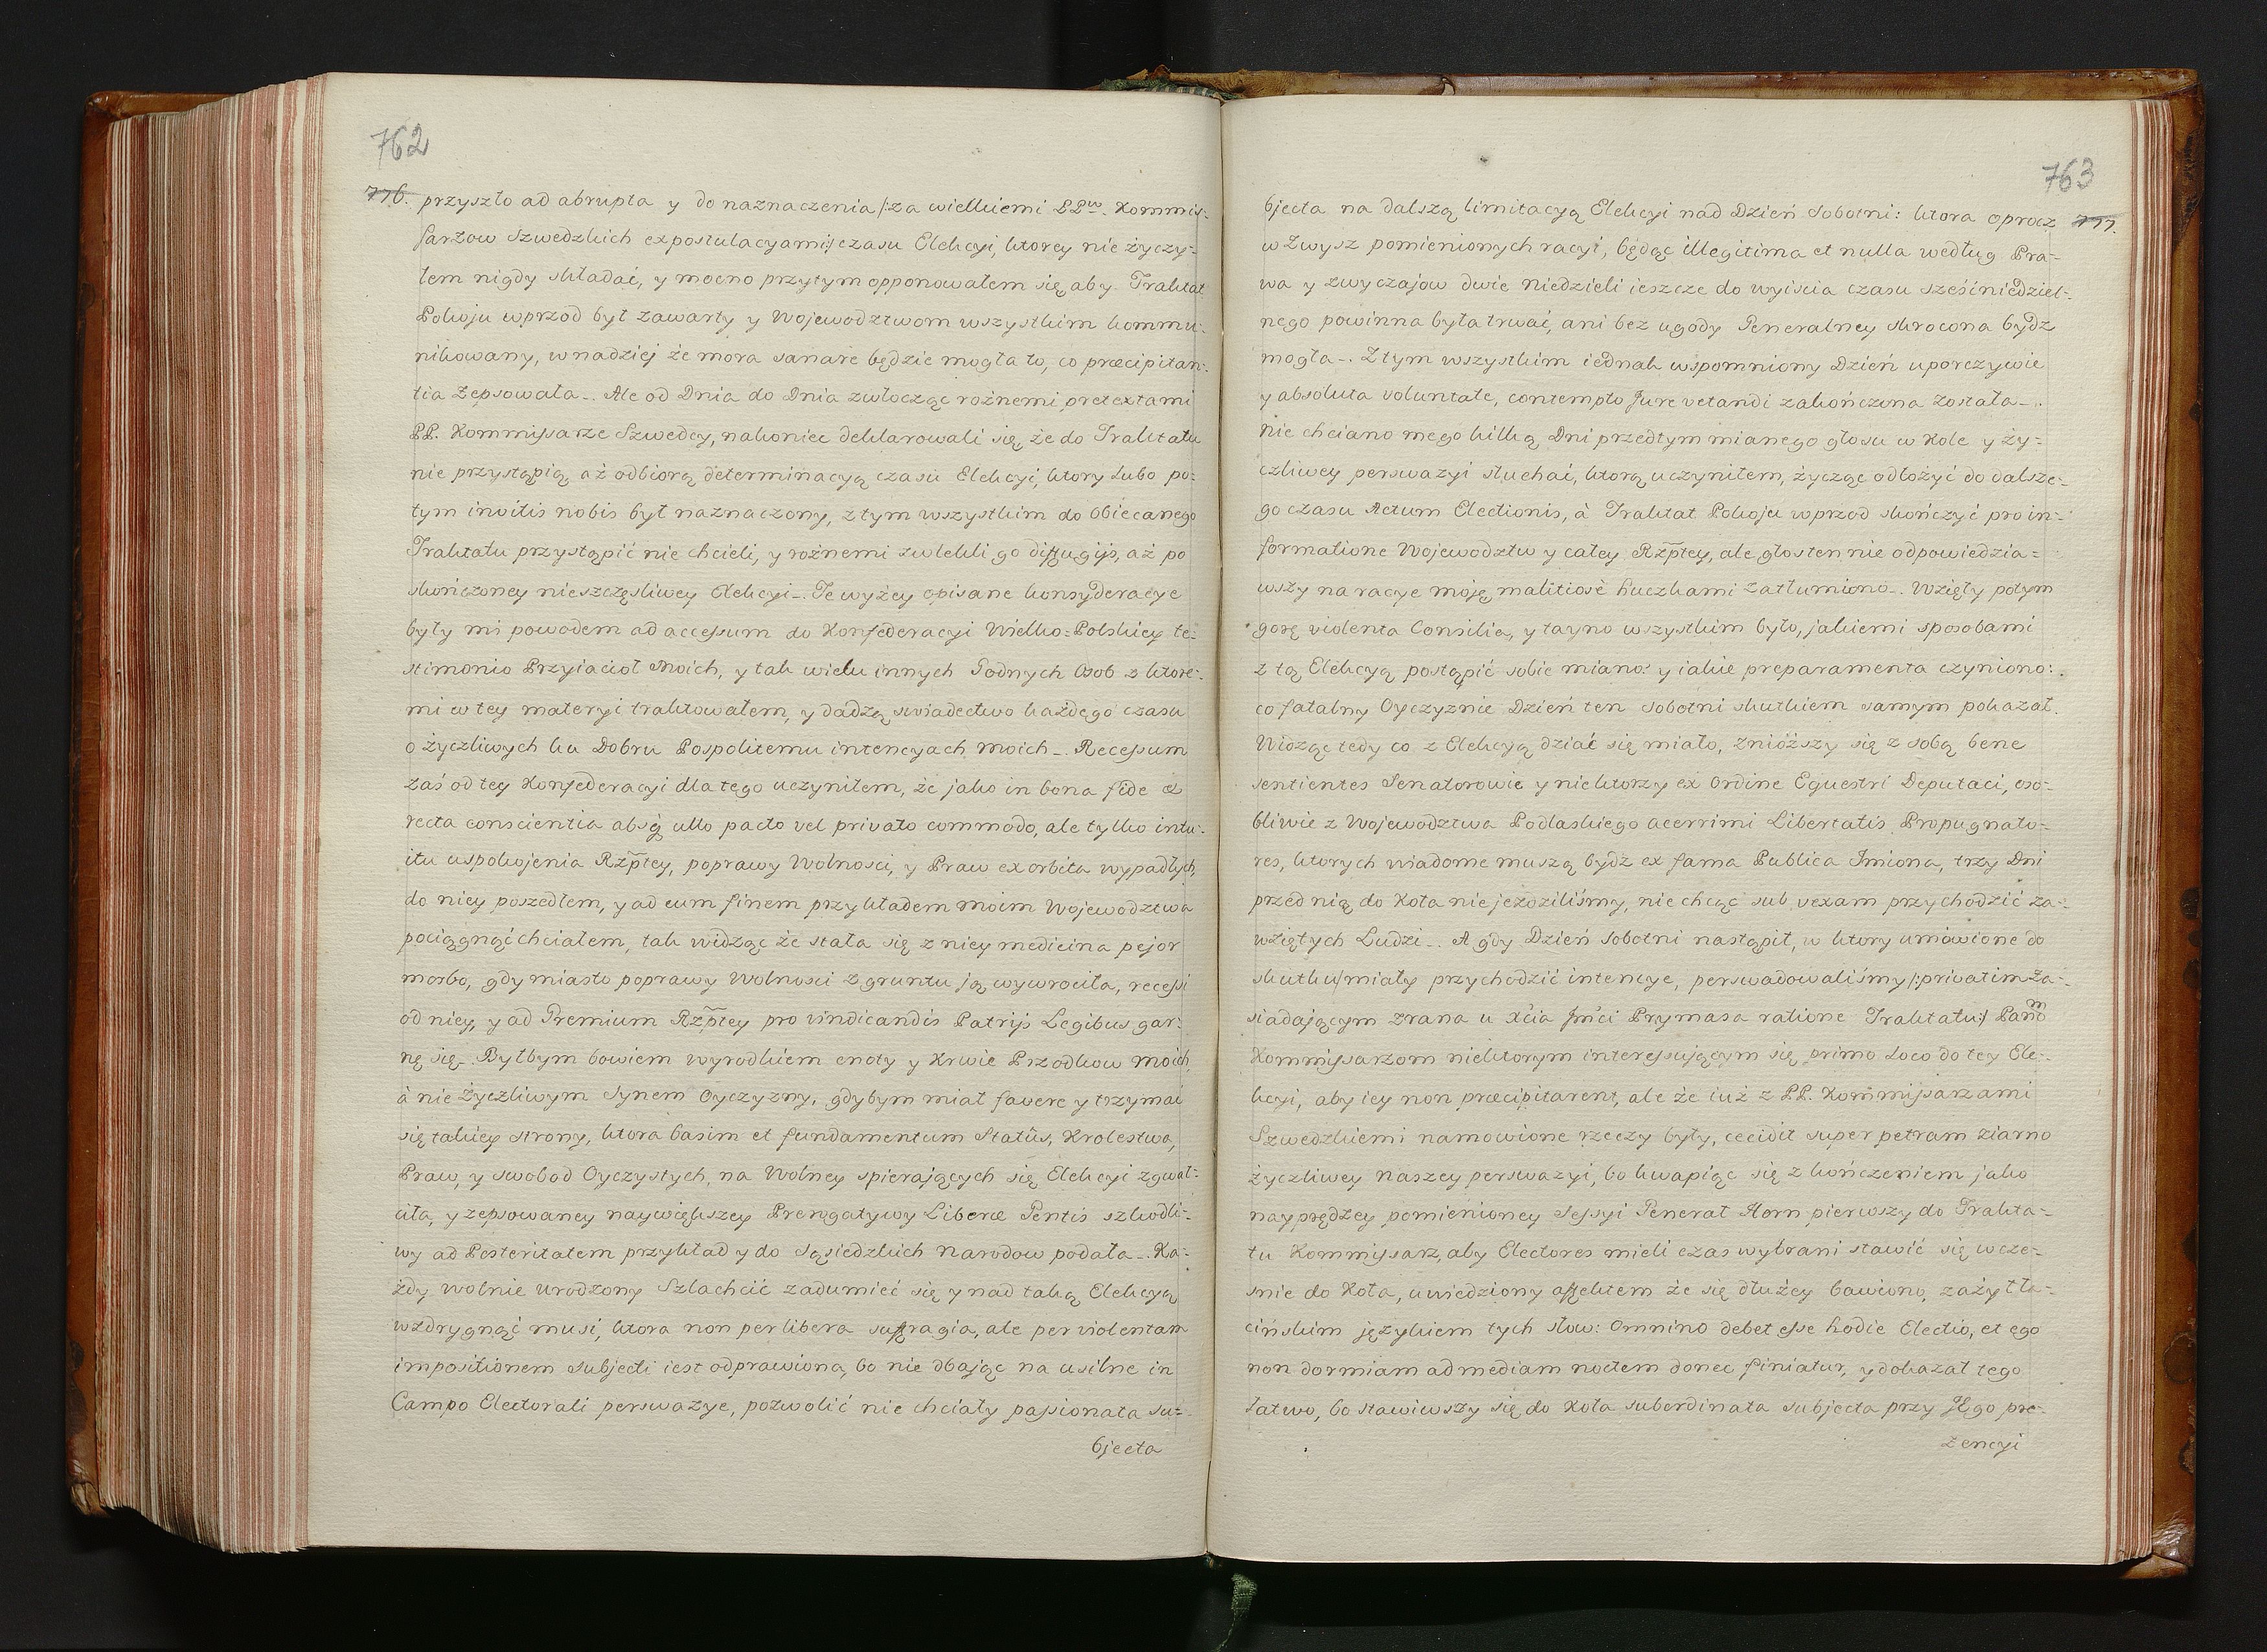 762
776. przyszło ad abrupta y do naznaczenia /:za wielkiemi PPw. Kommis-
sarzow Szwedzkich expostulacyami:/ czasu Elekcyi, ktorey nie życzy-
łem nigdy składać, y mocno przytym opponowałem się, aby Traktat
Pokoju wprzod był zawarty y Wojewodztwom wszystkim kommu-
nikowany, w nadziej że mora sanare będzie mogła to, co præcipitan-
tia zepsowała. Ale od Dnia do Dnia zwłocząc rożnemi pretextami
PP. Kommissarze Szwedcy, nakoniec deklarowali się, że do Traktatu
nie przystąpią, aż odbiorą determinacyą czasu Elekcyi, ktory lubo po-
tym invitis nobis był naznaczony, z tym wszystkim do obiecanego
Traktatu przystąpić nie chcieli, y rożnemi zwlekli go diffugijs, aż po
skończoney nieszczęsliwey Elekcyi. Te wyżey opisane konsyderacye
były mi powodem ad accessum do Konfederacyi Wielko-Polskiey te-
stimonio Przyiacioł Moich, y tak wielu innych Godnych Osob z ktore-
mi w tey materyi traktowałem, y dadzą swiadectwo każdego czasu
o życzliwych ku Dobru Pospolitemu intencyach moich. Recessum
zaś od tey Konfederacyi dla tego uczyniłem, że jako in bona fide et
recta conscientia absq ullo pacto vel privato commodo, ale tylko intu-
itu uspokojenia Rzptey, poprawy Wolnosci, y Praw ex orbita wypadłych,
do niey poszedłem, y ad eum finem przykładem moim Wojewodztwa
pociągnąć chciałem, tak widząc że stała się z niey medicina pejor
morbo, gdy miasto poprawy Wolnosci z gruntu ją wywrociła, recessi
od niey, y ad Premium Rzptey pro vindicandis Patrijs Legibus gar-
nę się. Byłbym bowiem wyrodkiem cnoty y Krwie Przodkow moich,
à nie życzliwym Synem Oyczyzny, gdybym miał favere y trzymać
się takiey strony, ktora basim et fundamentum Statûs, Krolestwa,
Praw, y swobod Oyczystych, na Wolney spierających się Elekcyi zgwał-
ciła, y zepsowaney naywiększey Prerogatywy Liberæ Gentis szkodli-
wy ad Posteritatem przykład y do Sąsiedzkich narodow podała. Ka-
żdy wolnie urodzony Szlachcić zadumieć się y nad taką Elekcyą
wzdrygnąć musi, ktora non per libera suffragia, ale per violentam
impositionem subjecti iest odprawiona, bo nie dbając na usilne in
Campo Electorali perswazye, pozwolić nie chciały passionata su-
bjecta
763
777.
bjecta na dalszą limitacyą Elekcyi nad Dzień Sobotni: ktora oprocz
w Zwysz pomienionych racyi, będąc illegitima et nulla według Pra-
wa y zwyczajow dwie niedzieli ieszcze do wyiscia czasu sześćniedziel-
nego powinna była trwać, ani bez ugody Generalney skrocona bydz
mogła. Z tym wszystkim iednak wspomniony Dzień uporczywie
y absoluta voluntate, contempto Jure vetandi zakończona została.
Nie chciano mego kilką Dni przedtym mianego głosu w Kole y ży-
czliwey perswazyi słuchać, ktorą uczyniłem, życząc odłożyć do dalsze-
go czasu Actum Electionis, à Traktat Pokoju wprzod skończyć pro in-
formatione Wojewodztw y całey Rzptey, ale głos ten nie odpowiedzia-
wszy na racye moję malitiosè huczkami zatłumiono. Wzięły potym
gorę violenta Consilia, y tayno wszystkim było, jakiemi sposobami
z tą Elekcyą postąpić sobie miano: y iakie preparamenta czyniono:
co fatalny Oyczyznie Dzień ten sobotni skutkiem samym pokazał.
Widząc tedy co z Elekcyą dziać się miało, znióższy się z sobą bene
sentientes Senatorowie y niektorzy ex Ordine Equestri Deputaci, oso-
bliwie z Wojewodztwa Podlaskiego acerrimi Libertatis Propugnato-
res, ktorych wiadome muszą bydź ex fama Publica Imiona, trzy Dni
przed nią do Koła nie jezdziliśmy, nie chcąc sub vexam przychodzić za-
wziętych Ludzi. A gdy Dzień Sobotni nastąpił, w ktory umówione do
skutku miały przychodzić intencye, perswadowaliśmy /:privatim za-
siadającym zrana u Xcia Jmci Prymasa ratione Traktatu:/ Panom
Kommissarzom niektorym interessującym się primo Loco do tey Ele-
kcyi, aby iey non præcipitarent, ale że iuż z PP. Kommissarzami
Szwedzkiemi namowione rzeczy były, cecidit super petram ziarno
życzliwey naszey perswazyi, bo kwapiąc się z kończeniem jako
nayprędzey pomienioney Sessyi Generał Horn pierwszy do Trakta-
tu Kommissarz, aby Electores mieli czas wybrani stawić się wcze-
snie do Koła, uwiedziony affektem że się dłużey bawiono, zażył Ła-
cińskim językiem tych słow: Omnino debet esse hodie Electio, et ego
non dormiam ad mediam noctem donec finiatur, y dokazał tego
łatwo, bo stawiwszy się do Koła subordinata subjecta przy JEgo pre-
zencyi